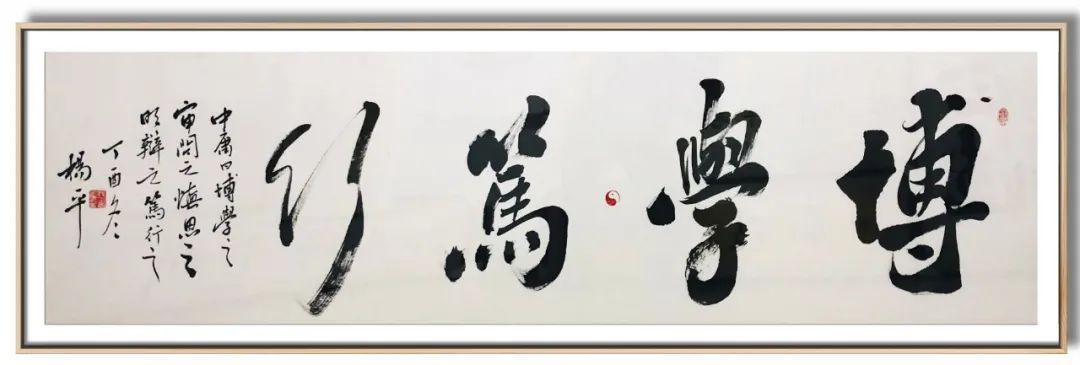 博學篤行
中庸曰博學之
审問之慎思之
明辯之篤行之
丁酉冬
楊平